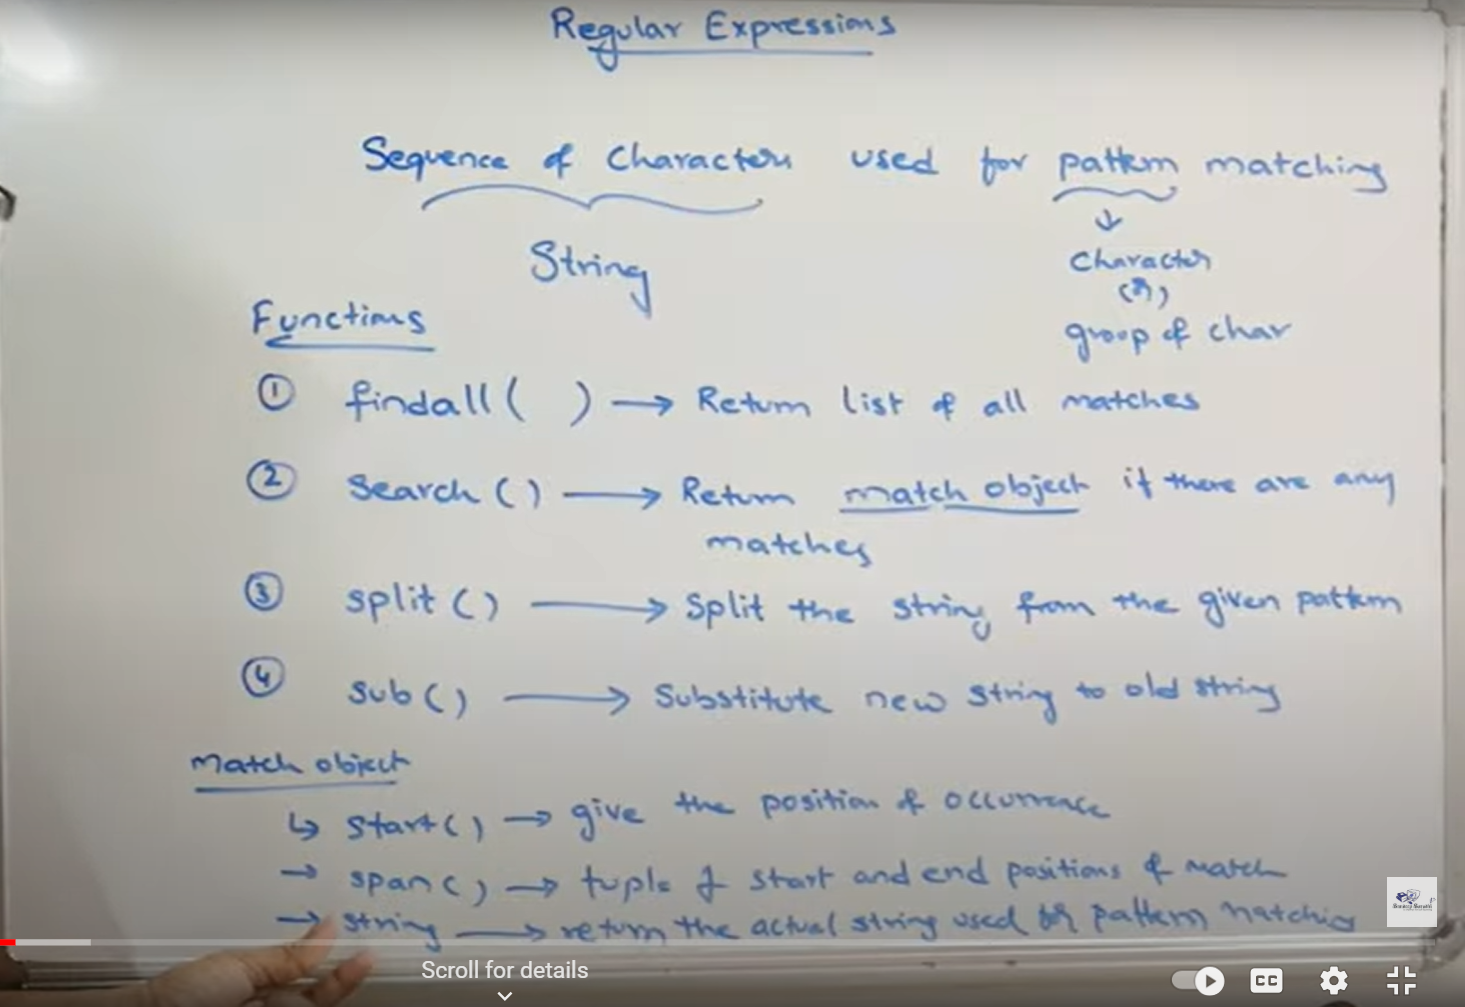 Regular Expressions
Sequence of Characters used for pattern matching
String
Character
(or)
group of char
Functions
① findall( ) → Return list of all matches
② search() → Return match object if there are any
matches
③ split() → Split the string from the given pattern
④ sub() → Substitute new string to old string
Match object
↳ start() → give the position of occurrence
→ span() → tuple of start and end positions of match
→ string → return the actual string used for pattern matching
Scroll for details
CC